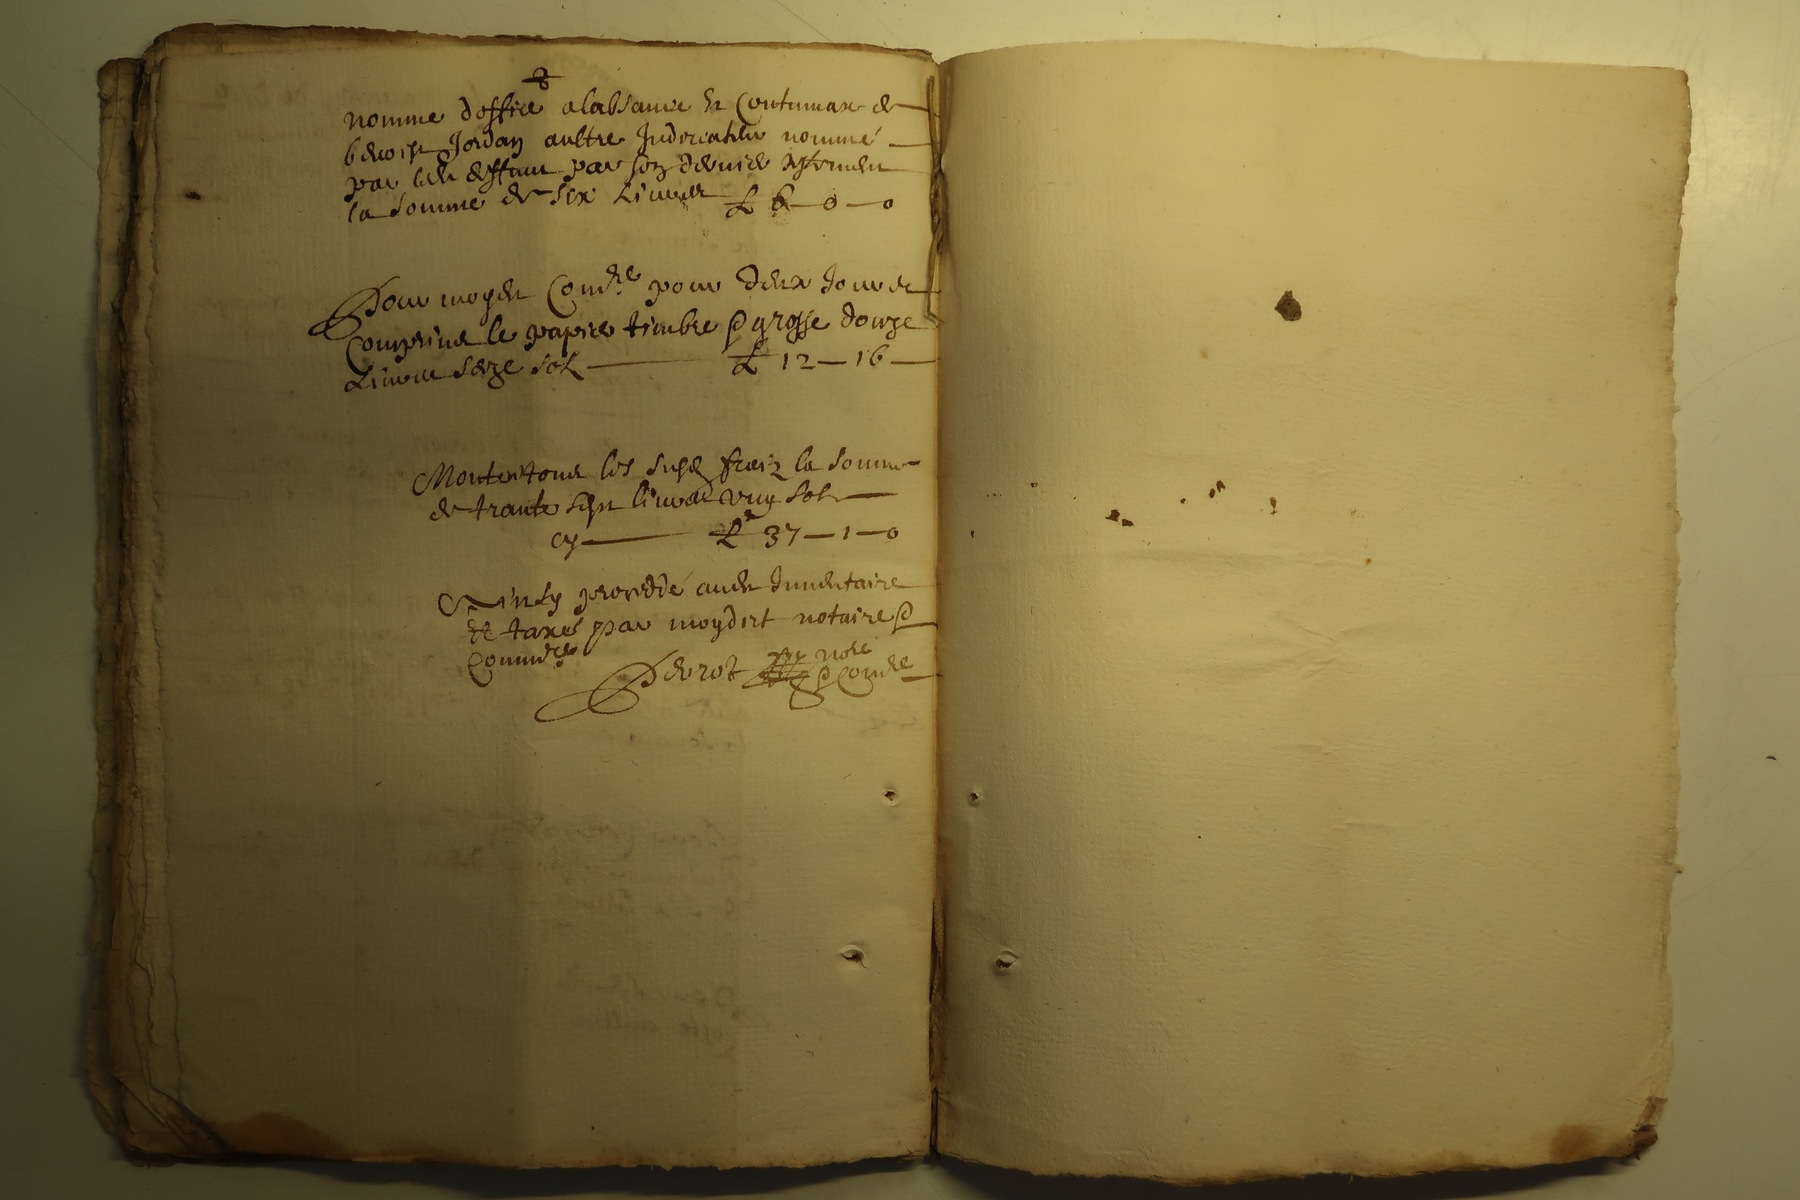 nomme doffice alabsance et Contumax de
benoist Jordan aultre Indicataire nomme
par led deffunt par son dernier testament
la somme de six Livres £ 6-0-0
Pour moyd Comre pour deux Jours
Comprins le papier timbre & grosse douze
Livres seze sols £ 12-16-
Montent tous les susd fraiz la somme
de trante sept livres ung sols
cy £ 37-1-0
Ainsy procedé aud Inventaire
et taxes par moydict notaire &
Commre
Perrot nore
& Comre